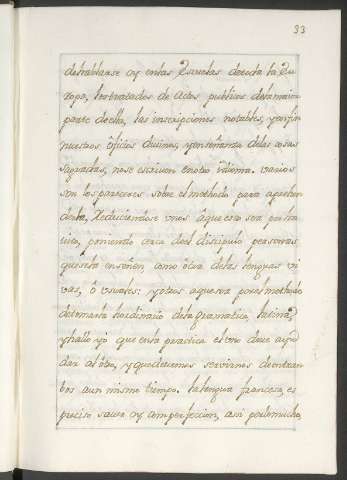 33
de hablarse oy en las Escuelas de toda la Eu
ropa, los tratados de actos publicos dela maior
parte de ella, las inscripciones notables, y en fin
nuestros oficios diuinos, y enseñanza delas cosas
sagradas, no se escriuen en otro idioma. varios
son los pareceres sobre el methodo para aprehen
derla, Reduciendose vnos a que esto sea por ru
tina, poniendo cerca del discipulo personas
que se la enseñen, como otra delas lenguas vi
vas, ò vsuales: y otros a que sea por el methodo
de tomarla hordinario dela gramatica latina,
y hallo yo que en la practica el vno deue ayu
dar al otro, y que deuemos servirnos de entram
bos a un mismo tiempo. la lengua francesa, es
preciso saver oy con perfeccion, assi por lo mucho,